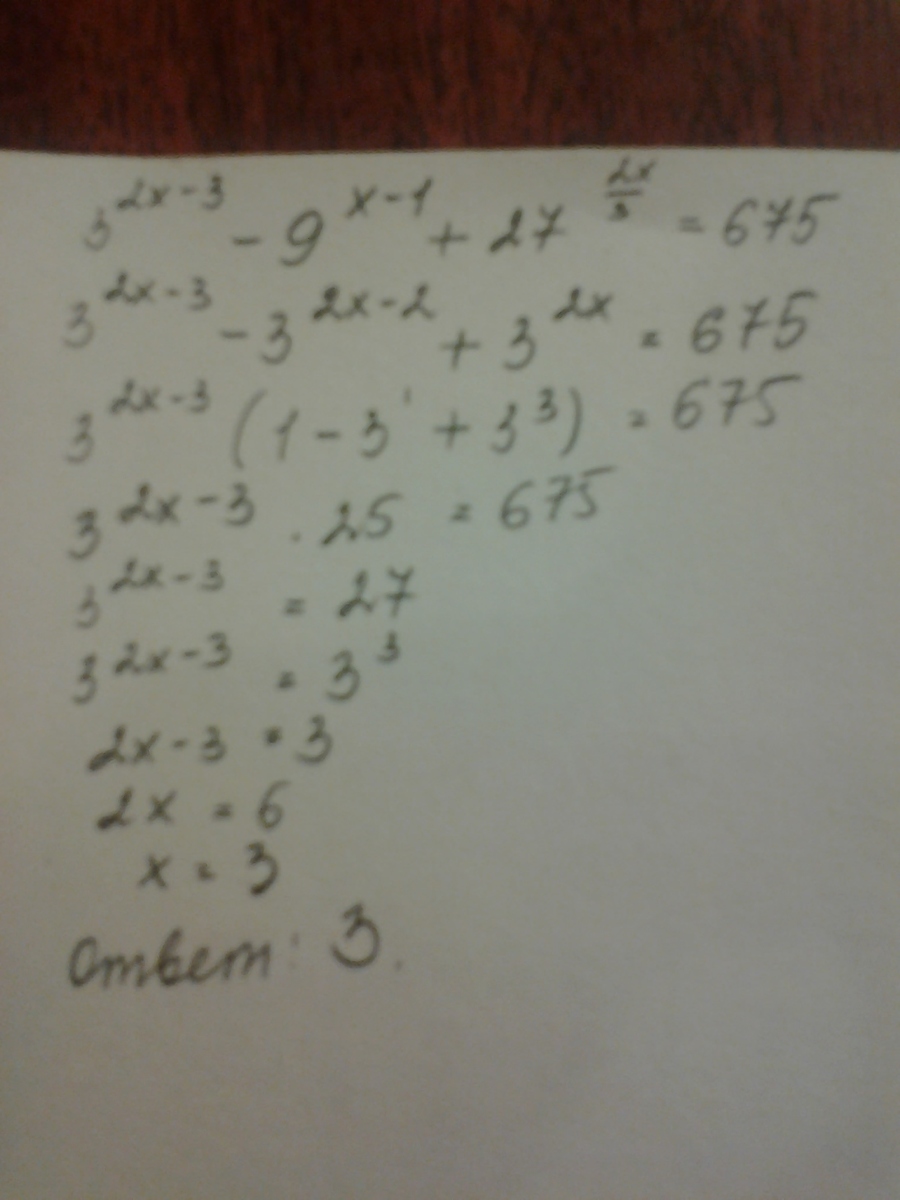 3^{2x-3} - 9^{x-1} + 27^{\frac{2x}{3}} = 675
3^{2x-3} - 3^{2x-2} + 3^{2x} = 675
3^{2x-3} (1 - 3^1 + 3^3) = 675
3^{2x-3} · 25 = 675
3^{2x-3} = 27
3^{2x-3} = 3^3
2x - 3 = 3
2x = 6
x = 3
Ответ: 3.